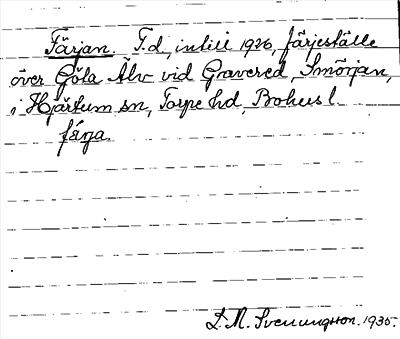 Färjan. T.d., intill 1926, färjeställe
över Göta Älv vid Gravered, Smörjan,
i Hjärtum sn, Torpe hd, Bohus l.
färja.
S. M. Svenungsson. 1935.